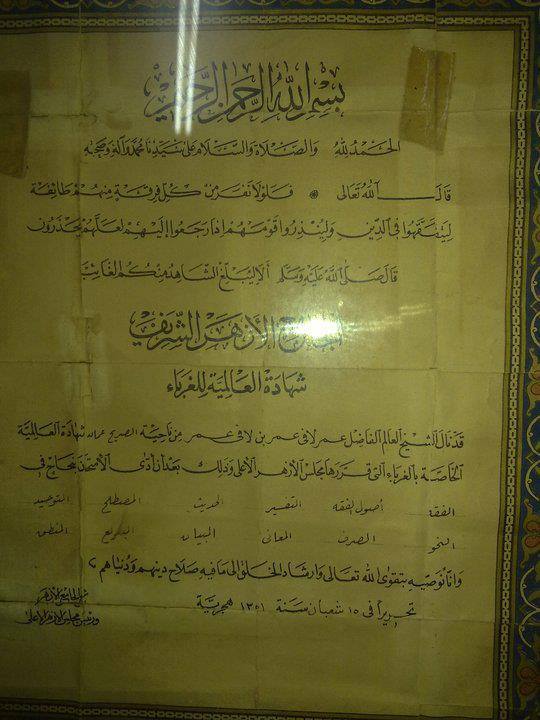 بسم الله الرحمن الرحيم
الحمد لله والصلاة والسلام على سيدنا محمد وآله وصحبه
قال الله تعالى * فلولا نفر من كل فرقة منهم طائفة
ليتفقهوا في الدين ولينذروا قومهم إذا رجعوا إليهم لعلهم يحذرون
قال صلى الله عليه وسلم ألا ليبلغ الشاهد منكم الغائب
الجامع الأزهر الشريف
شهادة العالمية للغرباء
قد نال الشيخ العالم الفاضل عمر لافي عمر بن لافي عمر من ناحية الصريح شهادة العالمية
الخاصة بالغرباء التي قررها مجلس الأزهر الأعلى وذلك بعد أن أدى الامتحان بنجاح في
الفقه أصول الفقه التفسير الحديث المصطلح التوحيد
النحو الصرف المعاني البيان البديع المنطق
وإنا نوصيه بتقوى الله تعالى وإرشاد الخلق إلى ما فيه صلاح دينهم ودنياهم
تحريرا في ١٥ شعبان سنة ١٣٥١ هجرية
شيخ الجامع الأزهر
ورئيس مجلس الأزهر الأعلى